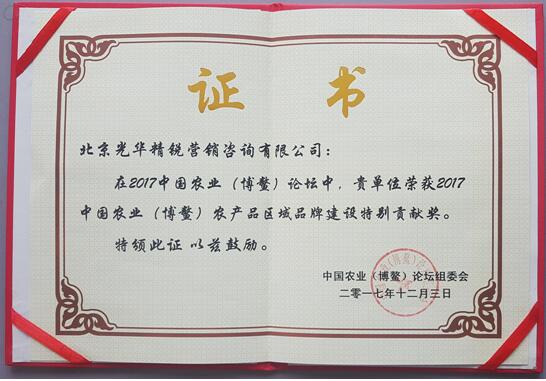 证 书
北京光华精锐营销咨询有限公司：
在2017中国农业（博鳌）论坛中，贵单位荣获2017
中国农业（博鳌）农产品区域品牌建设特别贡献奖。
特颁此证 以兹鼓励。
中国农业（博鳌）论坛组委会
二零一七年十二月三日